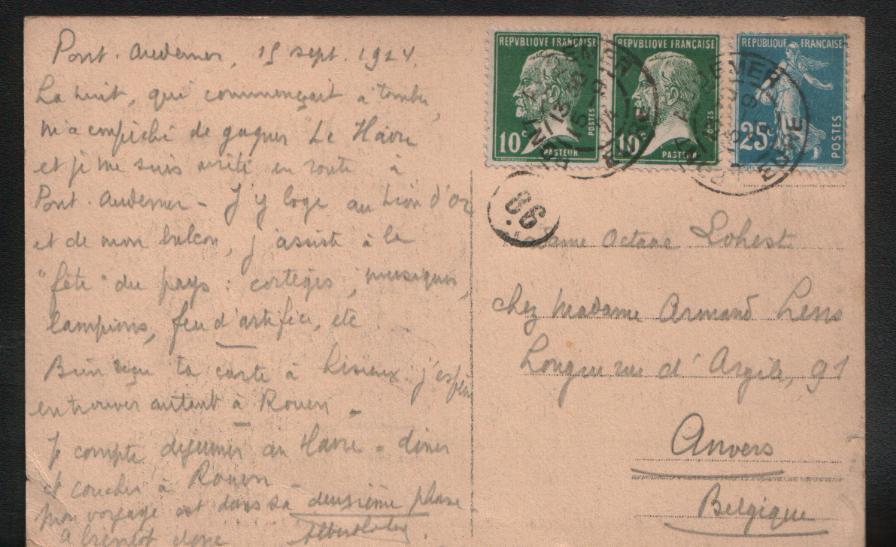 Pont-Audemer, 15 sept. 1924.
La nuit, qui commençait à tomber,
m'a empêché de gagner Le Hâvre
et je me suis arrêté en route à
Pont-Audemer - J'y loge au Lion d'Or
et de mon balcon, j'assiste à la
"fête" du pays : cortèges, musiques,
lampions, feu d'artifice, etc...
Bien reçu ta carte à Lisieux j'espère
en trouver autant à Rouen.
Je compte déjeuner au Havre - dîner
et coucher à Rouen
Mon voyage est dans sa deuxième phase
A bientôt donc
REPVBLIQVE FRANÇAISE
10c
POSTES
PASTEUR
REPVBLIQVE FRANÇAISE
10c
POSTES
PASTEUR
REPUBLIQUE FRANÇAISE
25c
POSTES
Octave Lohest
chez Madame Armand Lens
Longue rue d'Argile, 91
Anvers
Belgique